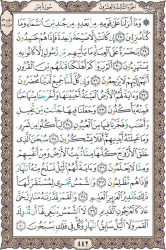 ۞ وَمَآ أَنزَلْنَا عَلَىٰ قَوْمِهِۦ مِنۢ بَعْدِهِۦ مِن جُندٍ مِّنَ ٱلسَّمَآءِ وَمَا
كُنَّا مُنزِلِينَ ٢٨ إِن كَانَتْ إِلَّا صَيْحَةً وَٰحِدَةً فَإِذَا هُمْ
خَٰمِدُونَ ٢٩ يَٰحَسْرَةً عَلَى ٱلْعِبَادِ مَا يَأْتِيهِم مِّن رَّسُولٍ إِلَّا كَانُوا۟ بِهِۦ
يَسْتَهْزِءُونَ ٣٠ أَلَمْ يَرَوْا۟ كَمْ أَهْلَكْنَا قَبْلَهُم مِّنَ ٱلْقُرُونِ أَنَّهُمْ
إِلَيْهِمْ لَا يَرْجِعُونَ ٣١ وَإِن كُلٌّ لَّمَّا جَمِيعٌ لَّدَيْنَا مُحْضَرُونَ ٣٢
وَءَايَةٌ لَّهُمُ ٱلْأَرْضُ ٱلْمَيْتَةُ أَحْيَيْنَٰهَا وَأَخْرَجْنَا مِنْهَا حَبًّا
فَمِنْهُ يَأْكُلُونَ ٣٣ وَجَعَلْنَا فِيهَا جَنَّٰتٍ مِّن نَّخِيلٍ
وَأَعْنَٰبٍ وَفَجَّرْنَا فِيهَا مِنَ ٱلْعُيُونِ ٣٤ لِيَأْكُلُوا۟ مِن ثَمَرِهِۦ
وَمَا عَمِلَتْهُ أَيْدِيهِمْ أَفَلَا يَشْكُرُونَ ٣٥ سُبْحَٰنَ ٱلَّذِى
خَلَقَ ٱلْأَزْوَٰجَ كُلَّهَا مِمَّا تُنۢبِتُ ٱلْأَرْضُ وَمِنْ أَنفُسِهِمْ
وَمِمَّا لَا يَعْلَمُونَ ٣٦ وَءَايَةٌ لَّهُمُ ٱلَّيْلُ نَسْلَخُ مِنْهُ ٱلنَّهَارَ
فَإِذَا هُم مُّظْلِمُونَ ٣٧ وَٱلشَّمْسُ تَجْرِى لِمُسْتَقَرٍّ لَّهَا
ذَٰلِكَ تَقْدِيرُ ٱلْعَزِيزِ ٱلْعَلِيمِ ٣٨ وَٱلْقَمَرَ قَدَّرْنَٰهُ مَنَازِلَ حَتَّىٰ
عَادَ كَٱلْعُرْجُونِ ٱلْقَدِيمِ ٣٩ لَا ٱلشَّمْسُ يَنۢبَغِى لَهَآ أَن تُدْرِكَ
ٱلْقَمَرَ وَلَا ٱلَّيْلُ سَابِقُ ٱلنَّهَارِ وَكُلٌّ فِى فَلَكٍ يَسْبَحُونَ ٤٠
٤٤٢